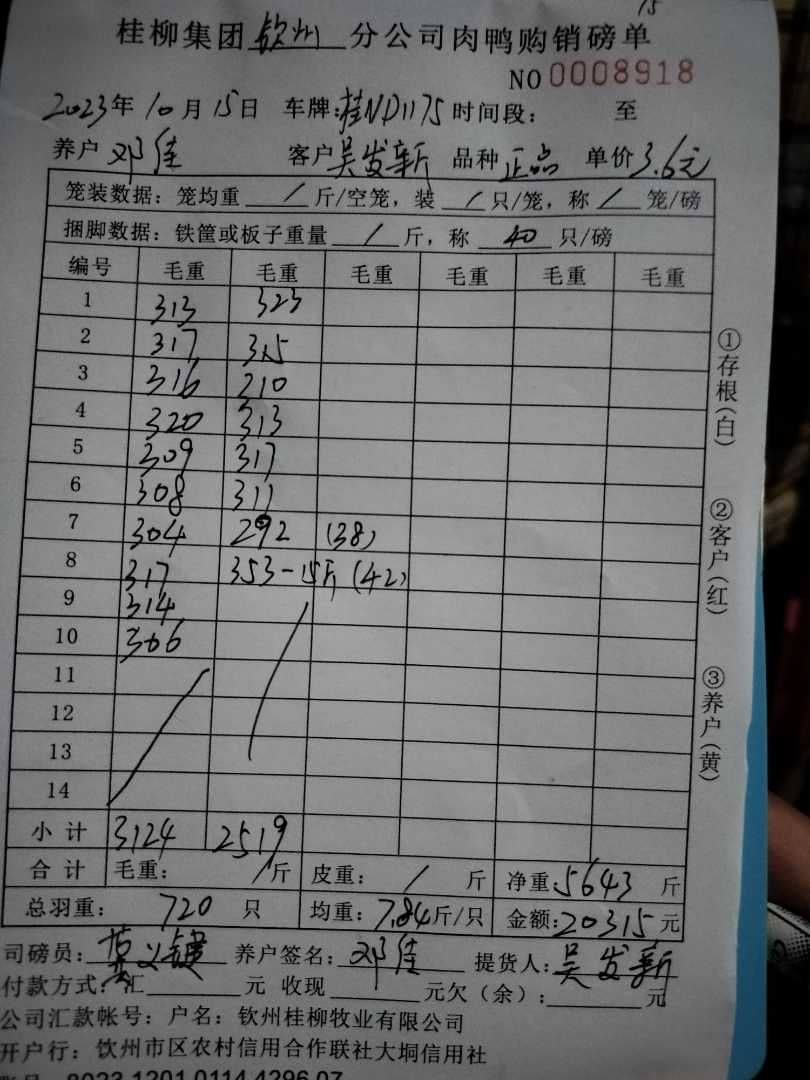 15
桂柳集团钦州分公司肉鸭购销磅单
NO 0008918
2023年10月15日 车牌:桂ND1175 时间段: 至
养户 邓佳 客户 吴发新 品种 正品 单价 3.6元
笼装数据: 笼均重 / 斤/空笼, 装 / 只/笼, 称 / 笼/磅
捆脚数据: 铁筐或板子重量 / 斤, 称 40 只/磅
编号 毛重 毛重 毛重 毛重 毛重 毛重
1 313 323
2 317 315
3 316 310
4 320 313
5 309 317
6 308 311
7 304 292 (38)
8 317 353-15斤(42)
9 314
10 306
11
12
13
14
小计 3124 2519
合计 毛重: / 斤 皮重: / 斤 净重: 5643 斤
总羽重: 720 只 均重: 7.84斤/只 金额: 20315元
司磅员: 养户签名: 邓佳 提货人: 吴发新
付款方式: 汇 元 收现 元欠(余): 元
公司汇款帐号: 户名: 钦州桂柳牧业有限公司
开户行: 钦州市区农村信用合作联社大垌信用社
8023 1201 0114 4296 07
①存根(白)
②客户(红)
③养户(黄)